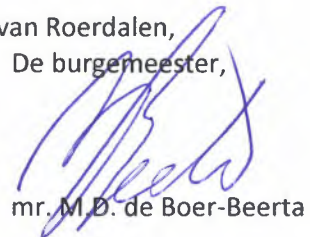 van Roerdalen,
De burgemeester,
mr. M.D. de Boer-Beerta